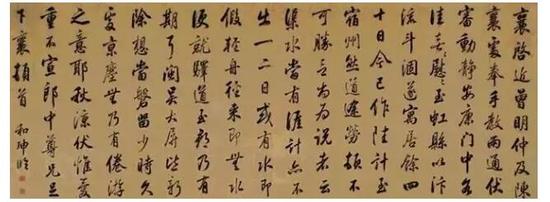 襄啓近曾明仲及陳
襄處奉手教兩通伏
審動靜安康門中各
佳喜慰至虹縣以汴
流斗涸遂寓居餘四
十日今已作陸計至
宿州然道途勞頓不
可勝言爲說者云
渠水當有涯計亦不
出一二日或有水即
假輕舟徑來即無水
便就驛道至都乃有
期耳閩吳大屏皆新
除想當磐留少時久
處京塵無乃有倦游
之意耶秋涼伏惟愛
重不宣郎中尊兄足
下襄頓首 和珅臨